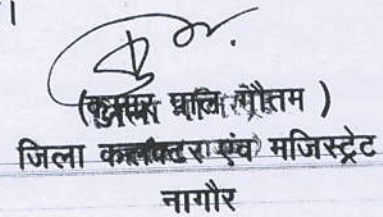 ।
(कुमार पाल गौतम )
जिला कलक्टर एंव मजिस्ट्रेट
नागौर